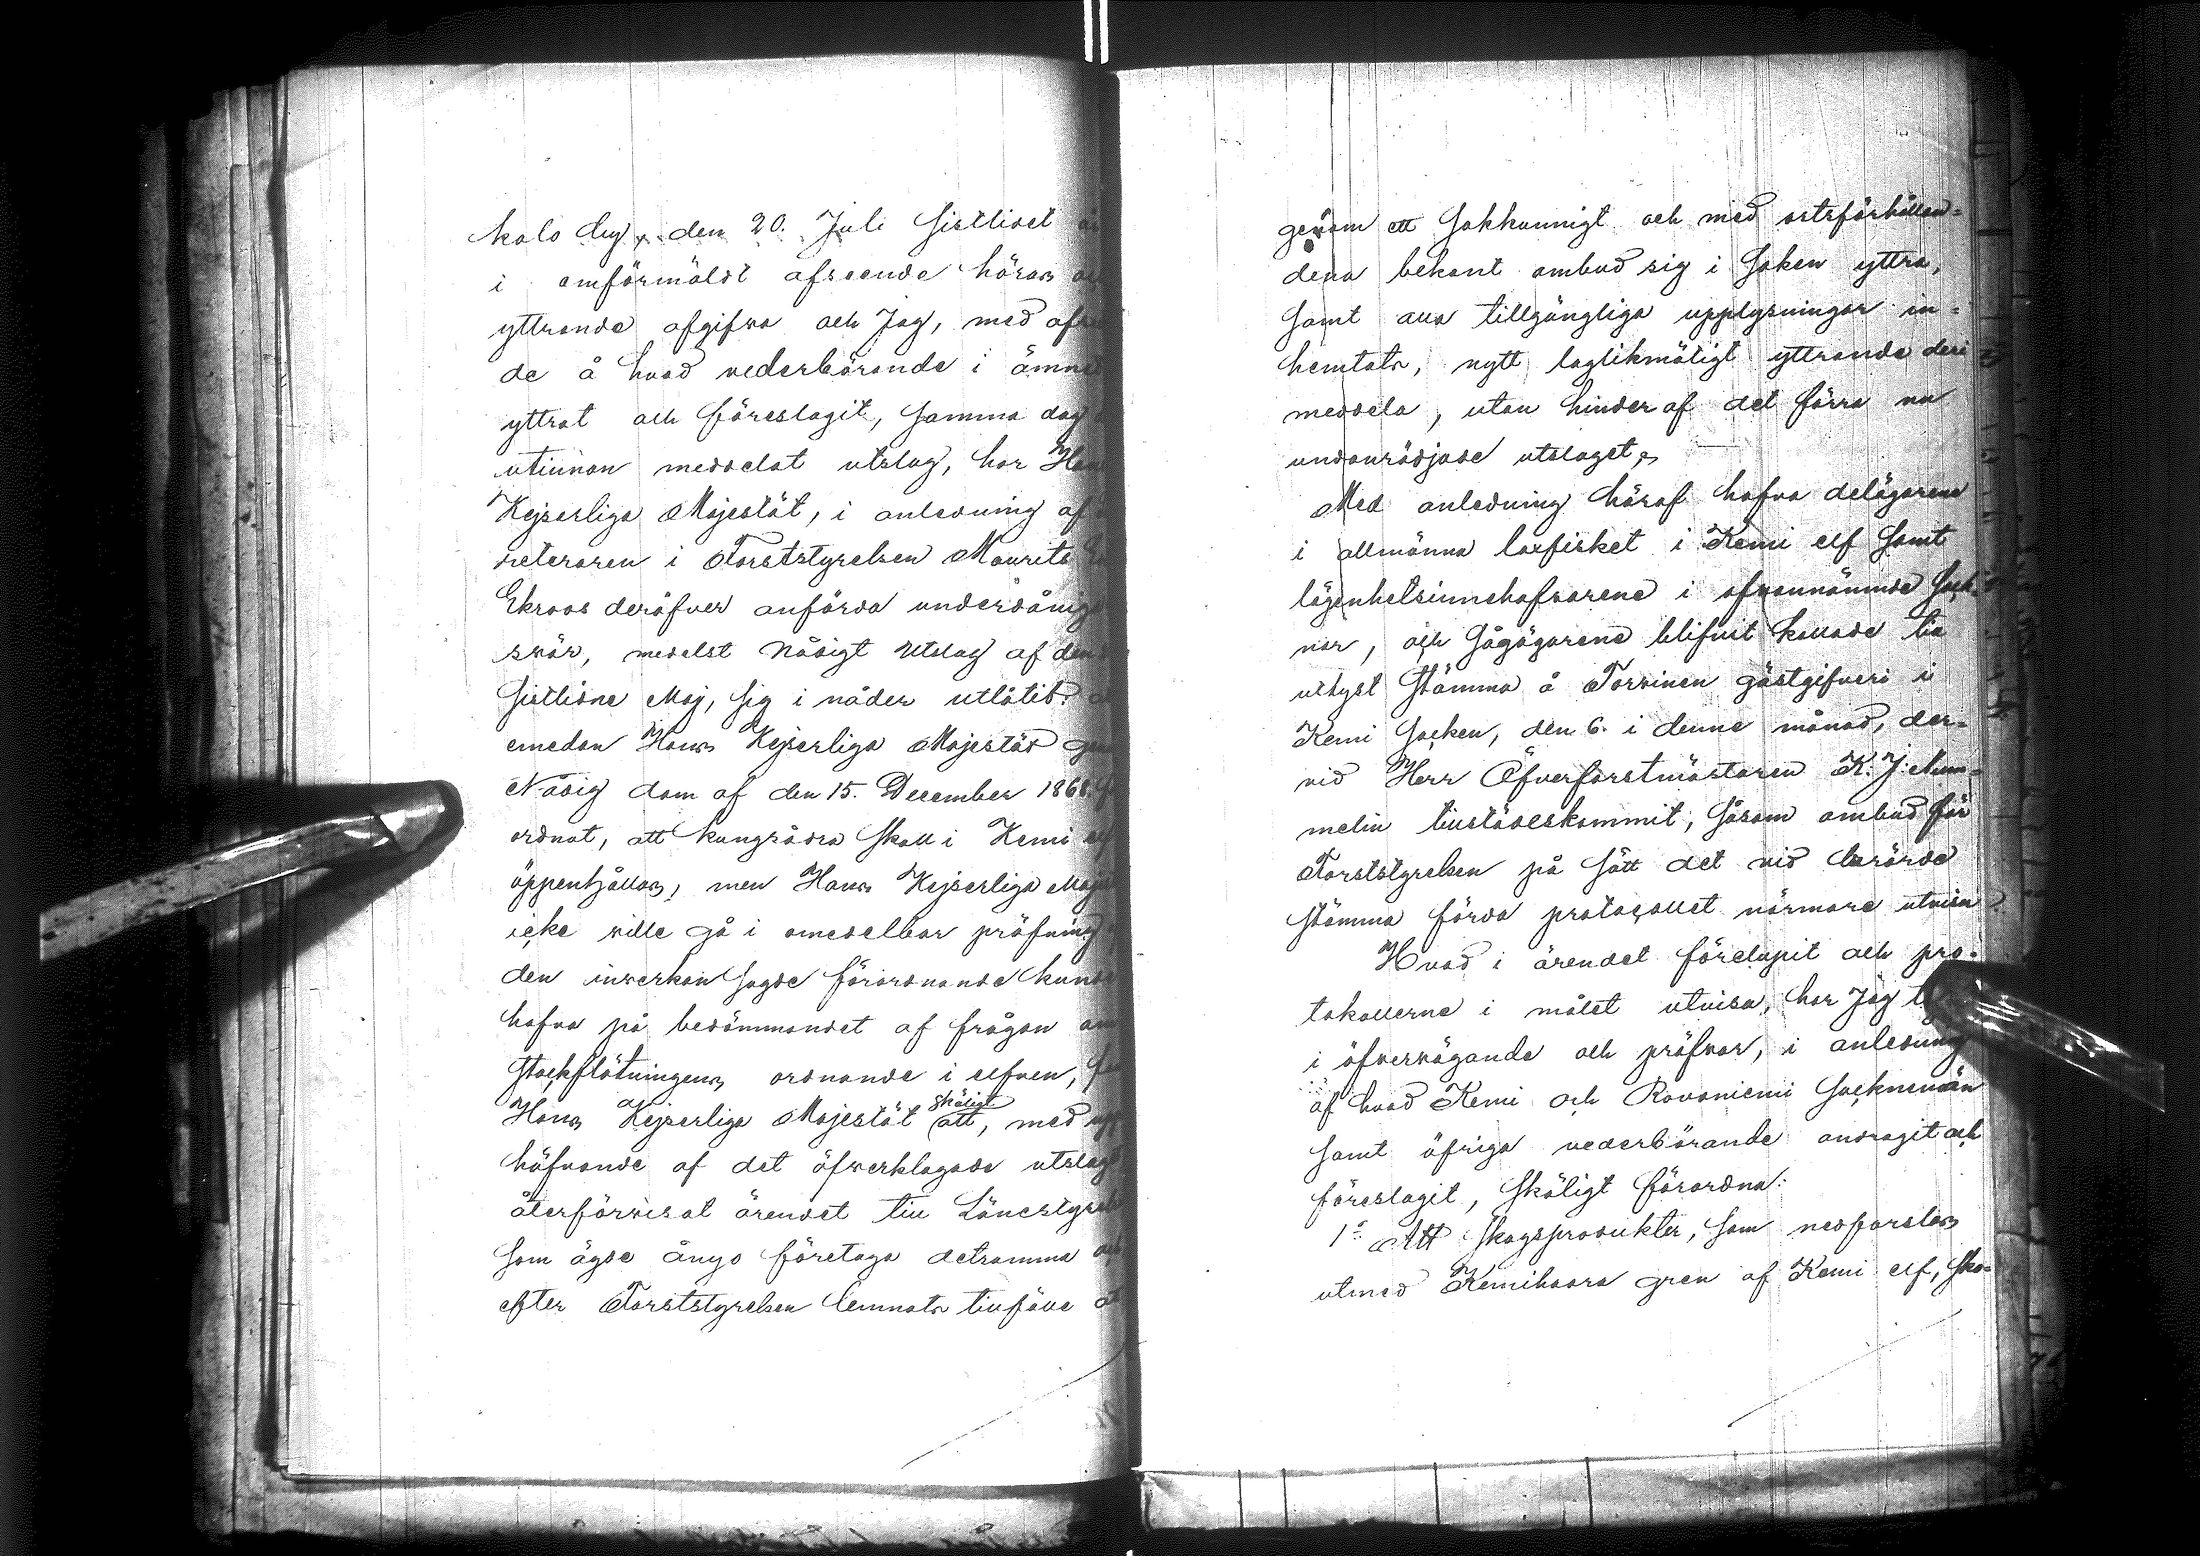 kals dag, den 20. Juli sistlidet
i omförmäldt afseende höras
yttrande afgifva och Jag, med
de å hvad vederbörande i ämnet
yttrat och föreslagit, samma dag
utinnan meddelat utslag, har Hans
Kejserliga Majestät, i anledning af
i Forststyrelsen Maurits
Ekroos deröfver anförda underdåniga
svär, medelst Nådigt Utslag af den
sistlidne Maj, sig i nåder utlåtit:
emedan Hans Kejserliga Majestät
Nådig dom af den 15. December 1868
ordnat, att kungsådra skall i Kemi
öppenhållas, men Hans Kejserliga Maj
icke ville gå i omedelbar pröfning
den inverkan sagde förordnande kund
hafva på bedömmandet af frågan
stockflötningens ordnande i elfven,
Hans Kejserliga Majestät skäligt att, med upp
höfvande af det öfverklagade utslag
återförvisat ärendet till Länestyrel
som ägde ånyo företaga detsamma
efter Forststyrelsen lemnats tillfälle
genom ett sakkunnigt och med ortsförhållan=
dena bekant ombud sig i saken yttra,
samt alla tillgängliga upplysningar in=
hemtats, nytt laglikmätigt yttrande deri
meddela, utan hinder af det förra nu
undanrödjade utslaget,
Med anledning häraf hafva delägarene
i allmänna laxfisket i Kemi elf samt
lägenhetsinnehafvarene i ofvannämnde sock=
nar, och sågägarene blifvit kallade till
utlyst stämma å Torvinen gästgifveri i
Kemi socken, den 6. i denne månad, der=
vid Herr Öfverforstmästaren K. J.
melin tillstädeskommit, såsom ombud för
Forststyrelsen på sätt det vid berörde
stämma förda protocollet närmare utvisa
Hvad i ärendet förelupit och pro=
tokollerne i målet utvisa, har Jag
i öfvervägande och pröfvar, i anledning
af hvad Kemi och Rovaniemi socknemän
samt öfriga vederbörande andragit och
föreslagit, skäligt förordna:
1o Att skogsprodukter, som nedforslas
utmed Kemihaara gren af Kemi elf, sko=